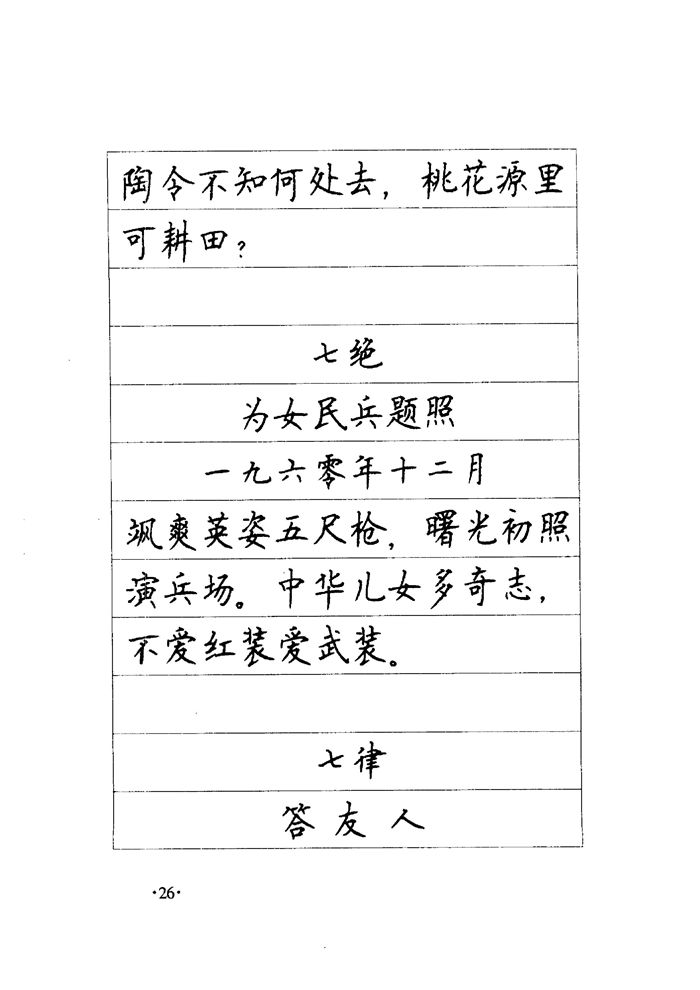 陶令不知何处去，桃花源里
可耕田？
七绝
为女民兵题照
一九六零年十二月
飒爽英姿五尺枪，曙光初照
演兵场。中华儿女多奇志，
不爱红装爱武装。
七律
答友人
·26·